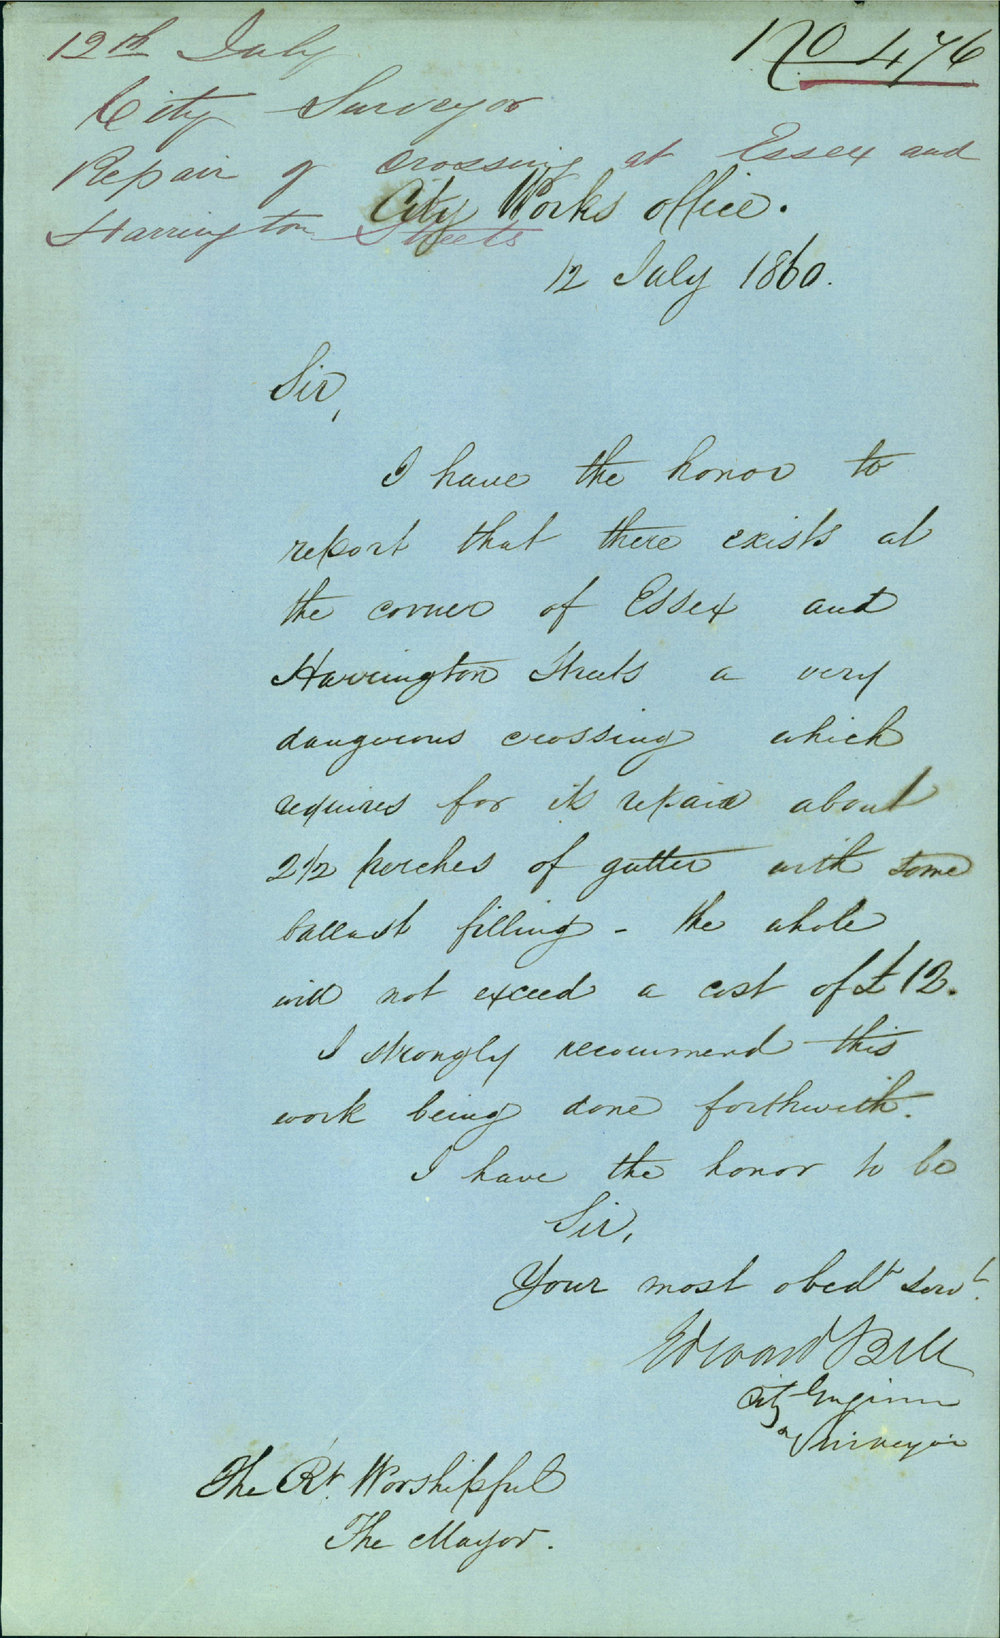 No 476
12th July
City Surveyor
Repair of crossing at Essex and
Harrington Streets
City Works office.
12 July 1860.
Sir,
I have the honor to
report that there exists at
the corner of Essex and
Harrington Streets a very
dangerous crossing which
requires for its repair about
2 1/2 perches of gutter with some
ballast filling - the whole
will not exceed a cost of £12.
I strongly recommend this
work being done forthwith.
I have the honor to be
Sir,
Your most obedt servt.
Edward Bell
City Engineer
& Surveyor
The Rt. Worshipful
The Mayor.